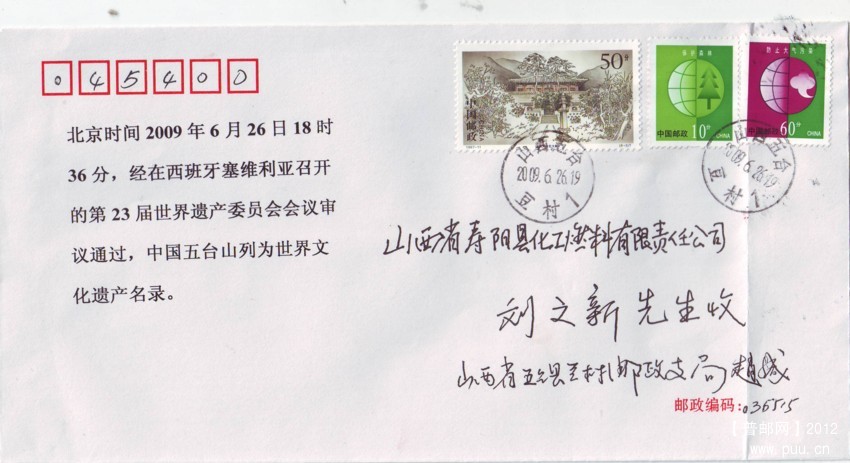 045400
北京时间 2009 年 6 月 26 日 18 时
36 分，经在西班牙塞维利亚召开
的第 23 届世界遗产委员会会议审
议通过，中国五台山列为世界文
化遗产名录。
50分
中国邮政
保护森林
中国邮政 10分 CHINA
防止大气污染
中国邮政 60分 CHINA
山西五台
2009.6.26.19
豆村 1
山西五台
2009.6.26.19
豆村 1
山西省寿阳县化工燃料有限责任公司
刘之新先生收
山西省五台县豆村邮政支局 赵
邮政编码:036515
【普邮网】2012
www.puu.cn